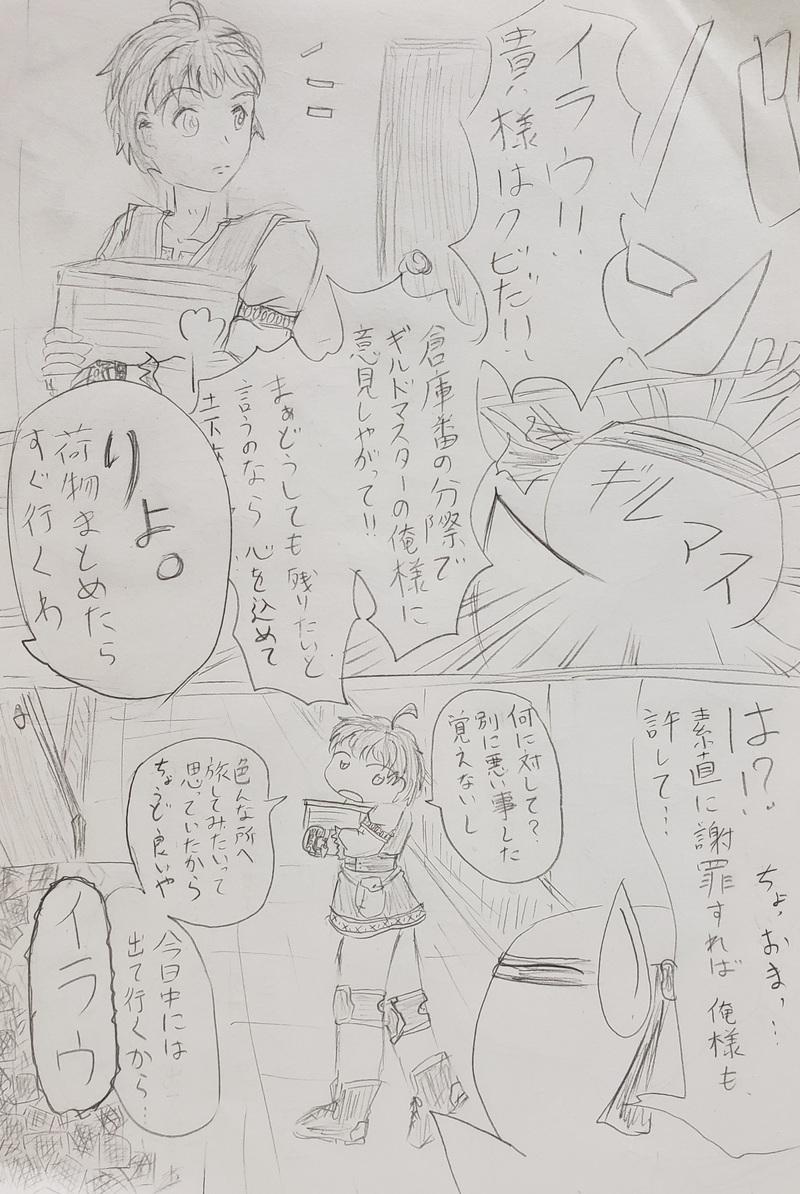 イラウ!!
貴様はクビだ!!
倉庫番の分際で
ギルドマスターの俺様に
意見しやがって!!
まぁどうしても残りたいと
言うのなら 心を込めて
土下
りょ。
荷物まとめたら
すぐ行くわ
ギルマス
は!?
素直に謝罪すれば 俺様も
許して…
ちょ、おま、…
何に対して?
別に悪い事した
覚えないし
色んな所へ
旅してみたいって
思っていたから
ちょうど良いや
今日中には
出て行くから…
イラウ